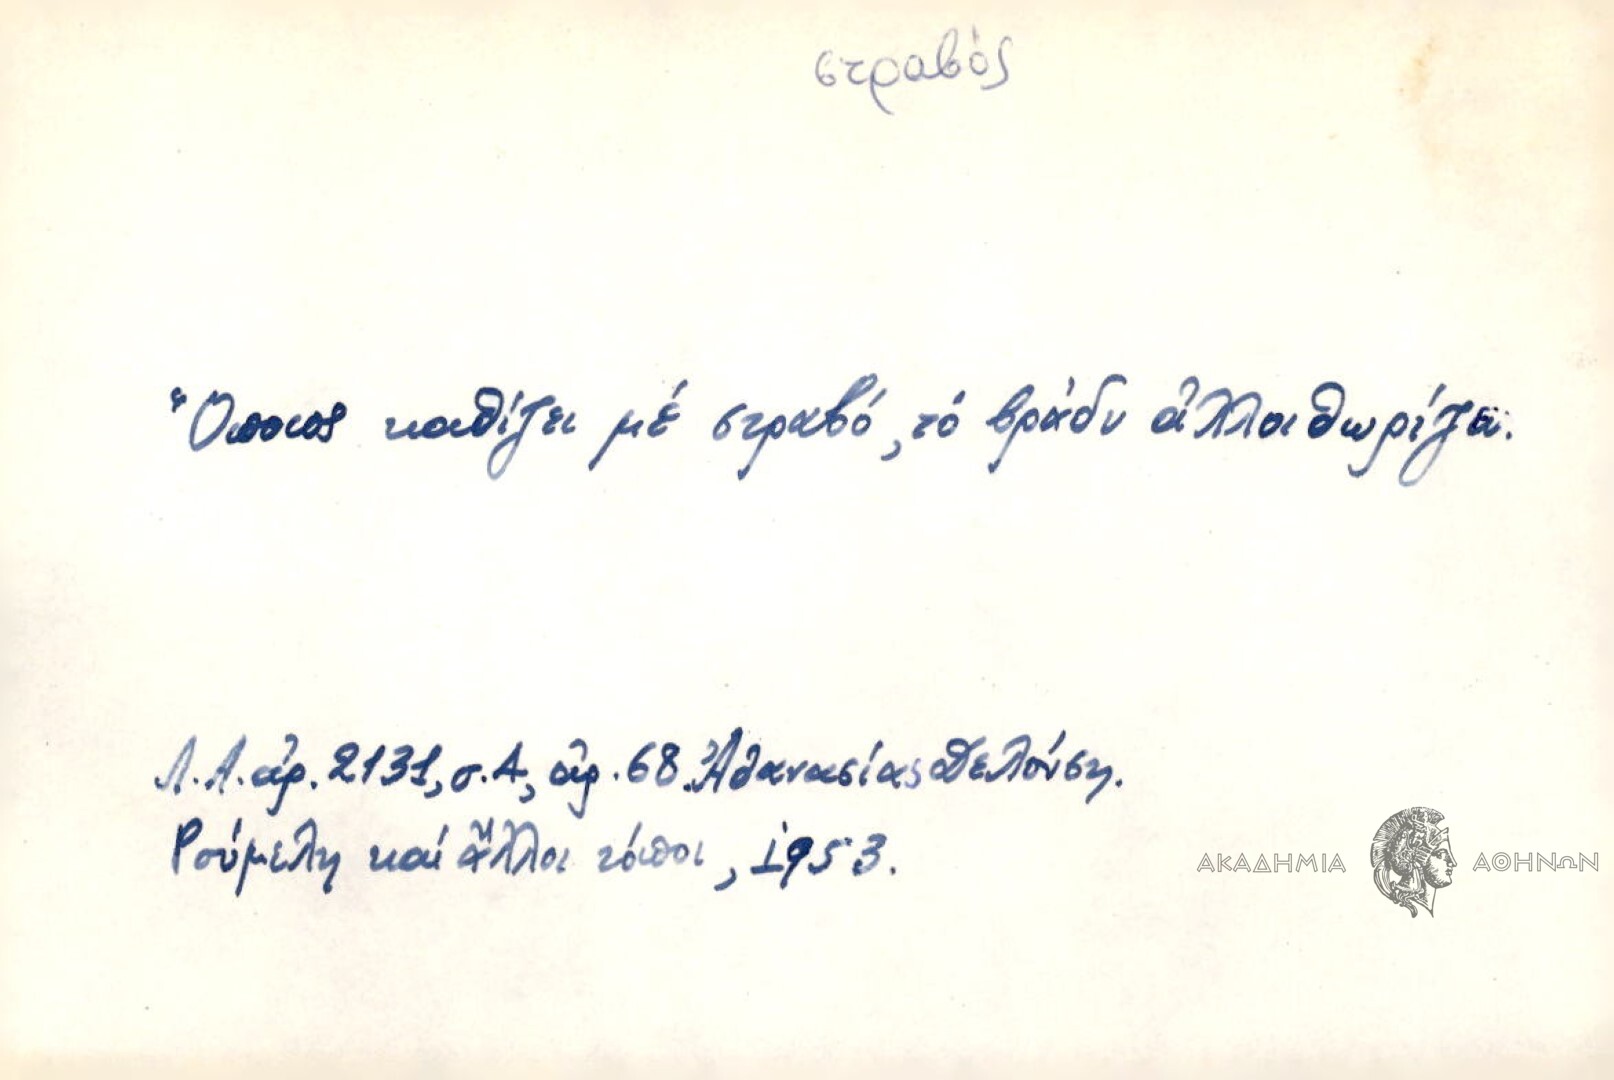 στραβός
Ὅποιος καθίζει μέ στραβό, τό βράδυ ἀλλοιθωρίζει.
Λ.Α. ἀρ. 2131, σ. 4, ἀρ. 68. Ἀθανασίας Δελούση.
Ρούμελη καί ἄλλοι τόποι, 1953.
ΑΚΑΔΗΜΙΑ ΑΘΗΝΩΝ